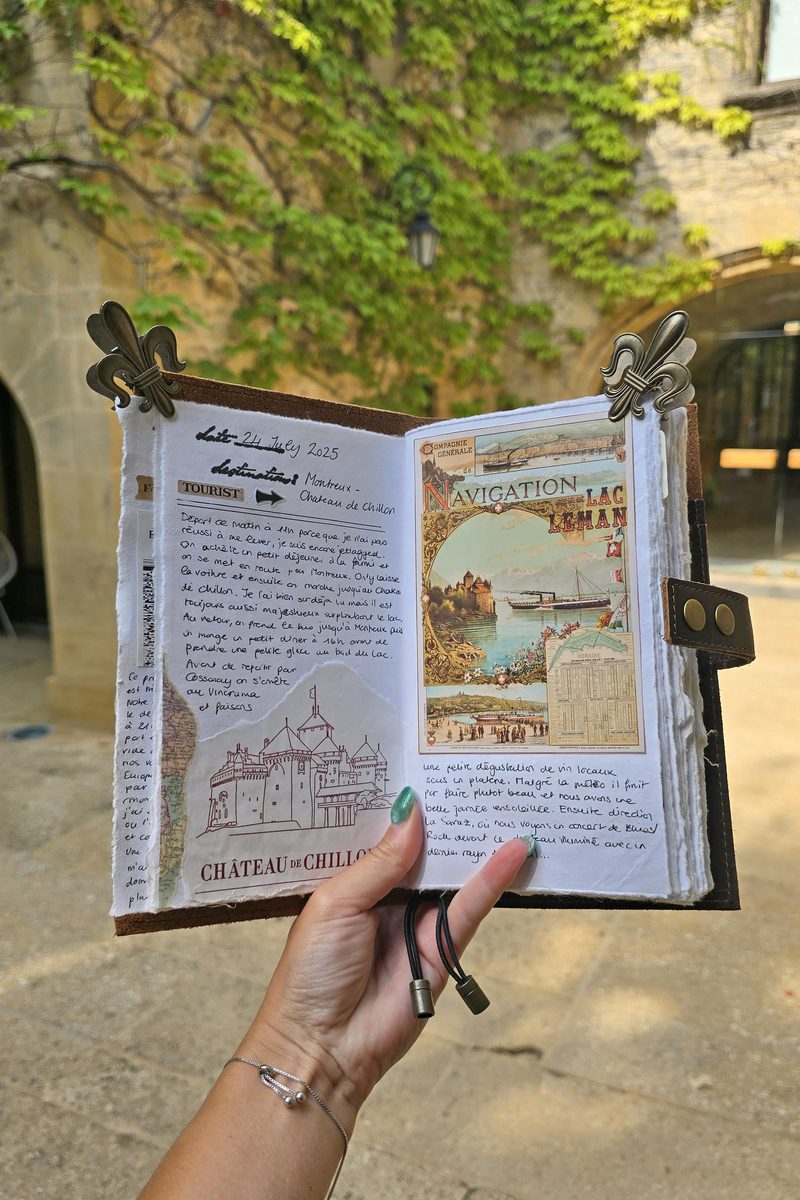 date 24 July 2025
destination: Montreux -
Chateau de Chillon
TOURIST
Départ ce matin à 11h parce que je n'ai pas
réussi à me lever, je suis encore jetlagged.
On achète un petit déjeuner à la farmi et
on se met en route pour Montreux. On y laisse
la voiture et ensuite on marche jusqu'au Chateau
de Chillon. Je l'ai bien sur déjà vu mais il est
toujours aussi majestueux surplombant le lac.
Au retour, on prend le bus jusqu'à Montreux puis
on mange un petit dîner à 16h avant de
prendre une petite glace au bord du Lac.
Avant de repartir par
Cossonay on s'arrête
au Vinorama
et faisons
CHÂTEAU DE CHILLO
COMPAGNIE
GÉNÉRALE
de
NAVIGATION
LAC
LEMAN
HORAIRE
une petite dégustation de vin locaux
sous un platane. Malgré la météo il finit
par faire plutot beau et nous avons une
belle journée ensoleillée. Ensuite direction
La Sarraz, où nous voyons un concert de Blues/
Rock devant le illuminé avec un
dernier rayon